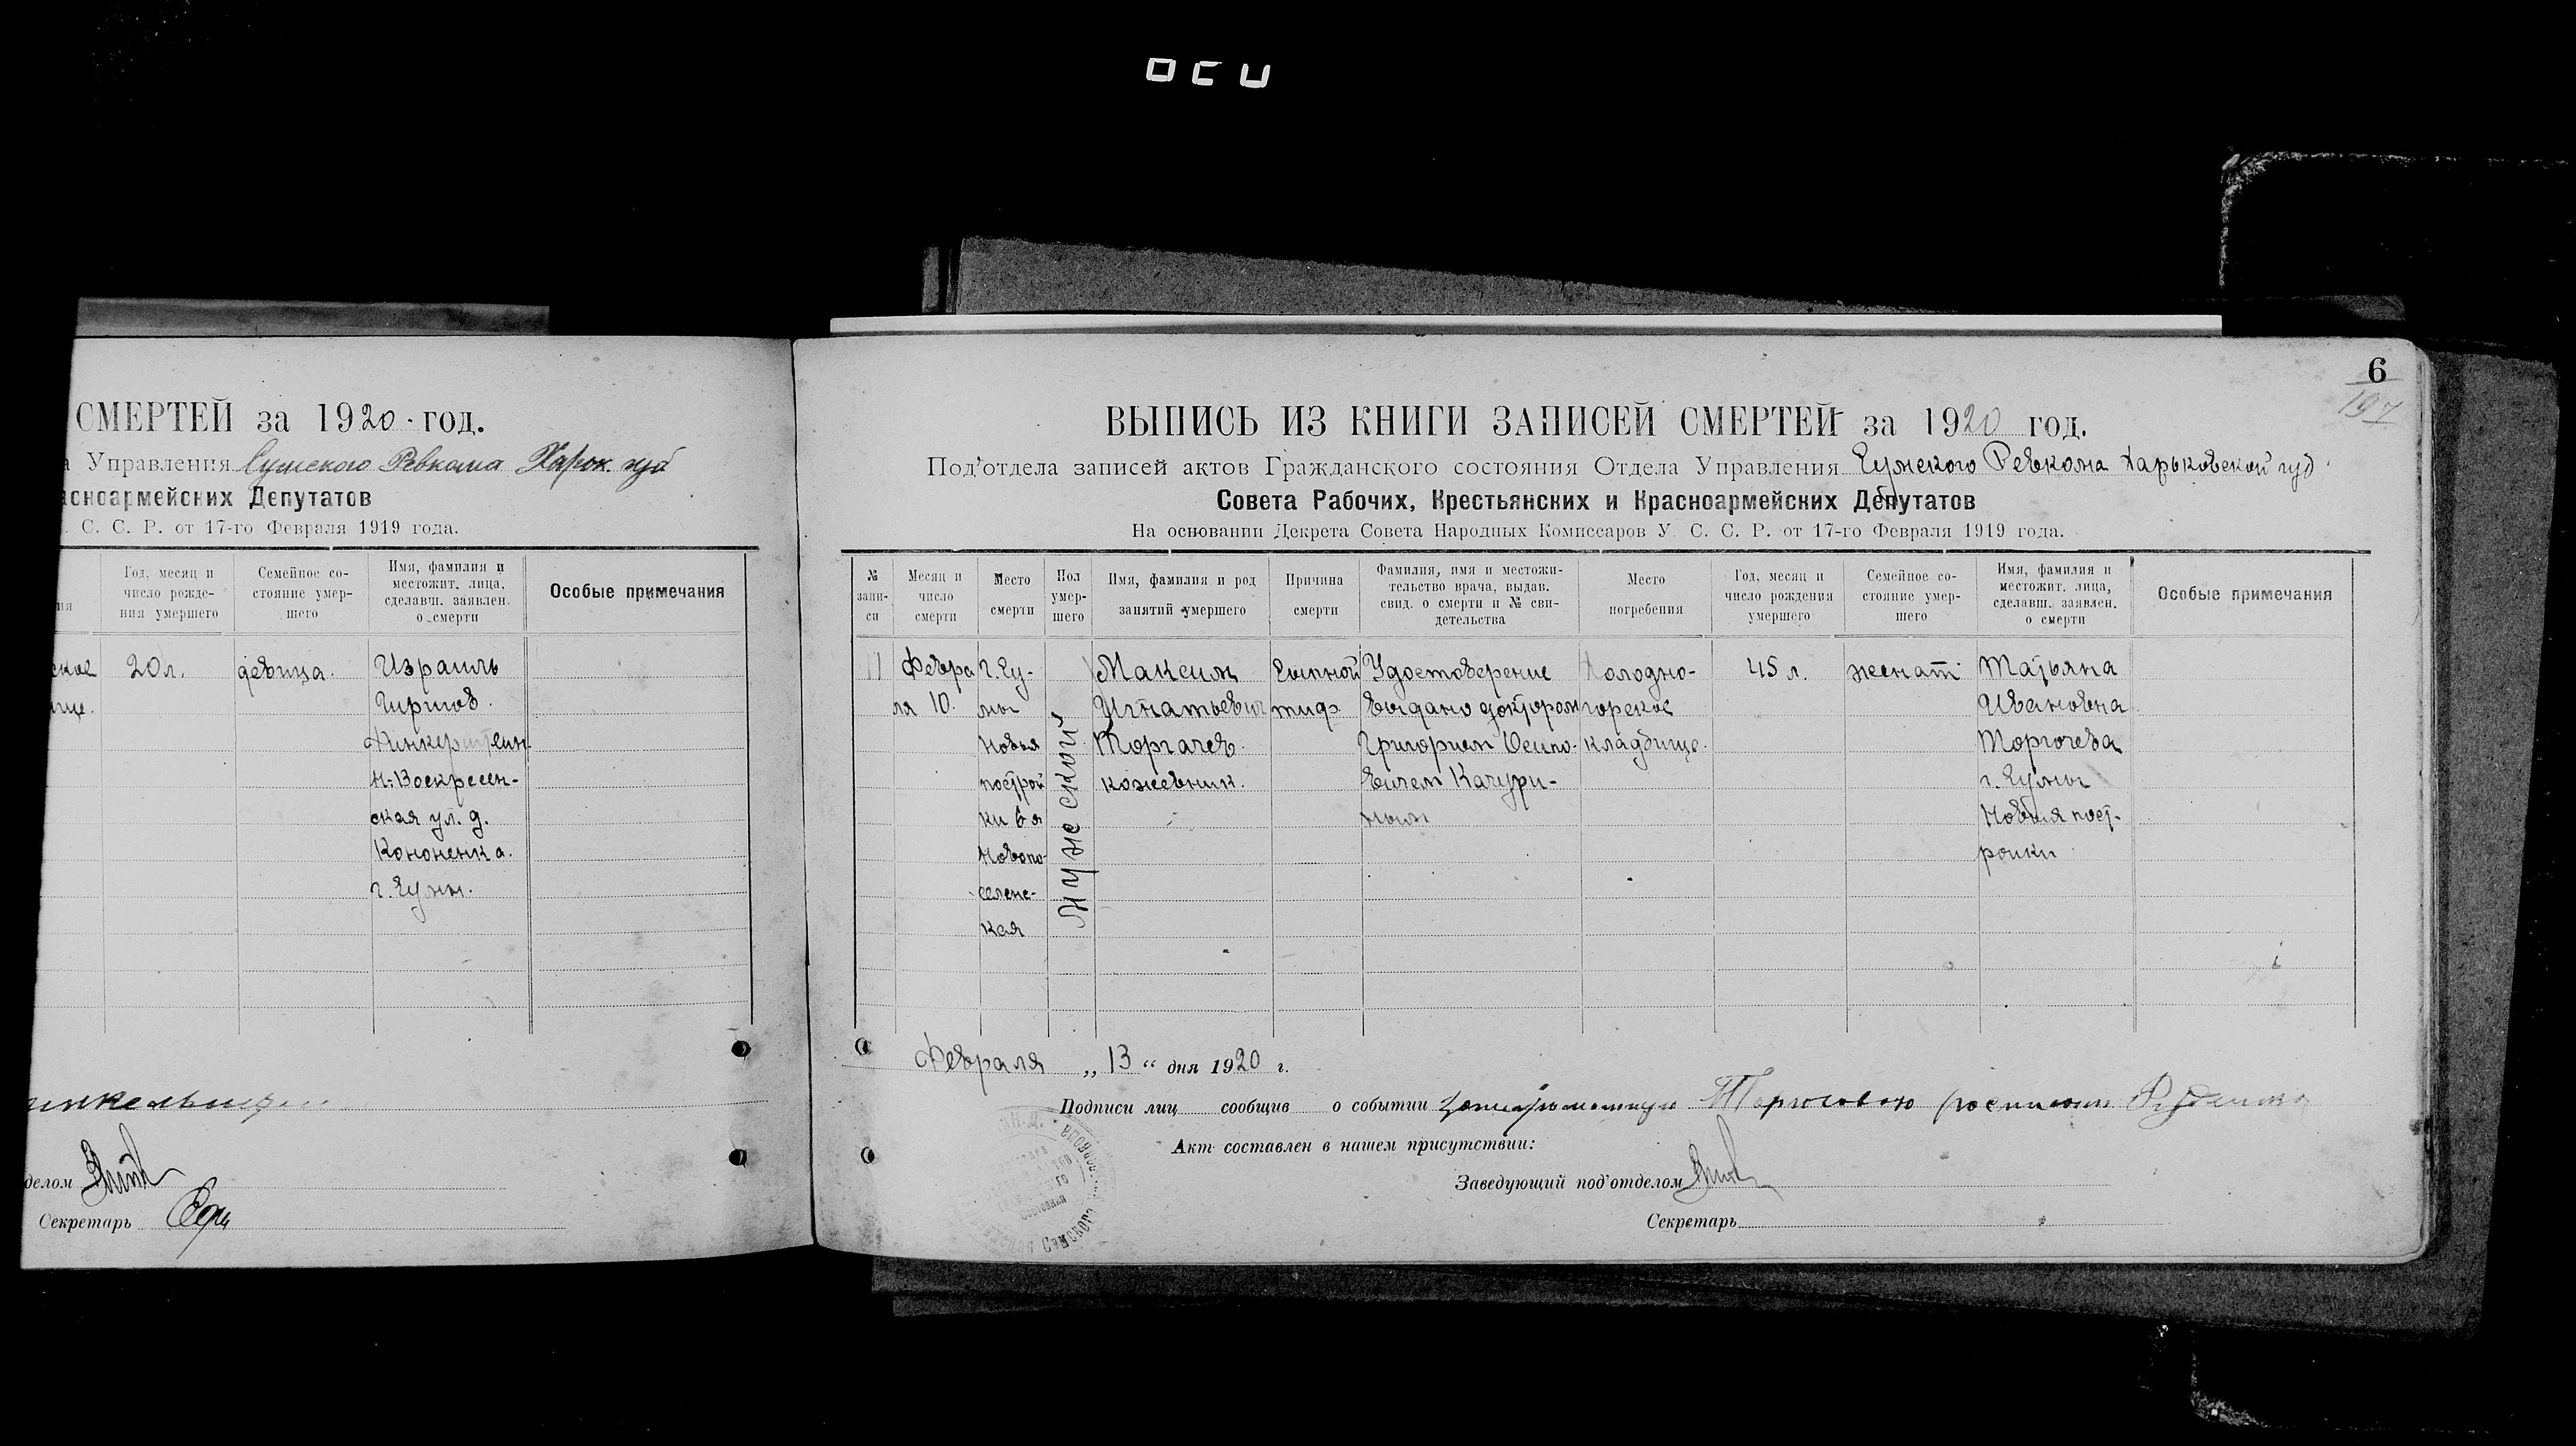 СМЕРТЕЙ за 1920 год.
Управления Сумского Ревкома Харьк. губ
асноармейских Депутатов
. С. С. Р. от 17-го Февраля 1919 года.
Год, месяц и
число рожде-
ния умершего
Семейное со-
стояние умер-
шего
Имя, фамилия и
местожит. лица,
сделавш. заявлен.
о смерти
Особые примечания
ское
20 л.
девица.
Израиль
Гиршов.
Н-Воскресен-
ская ул. д.
Кононенка.
г. Сумы.
делом
Секретарь
6
197
ВЫПИСЬ ИЗ КНИГИ ЗАПИСЕЙ СМЕРТЕЙ за 1920 год.
Под'отдела записей актов Гражданского состояния Отдела Управления Сумского Ревкома Харьковской губ.
Совета Рабочих, Крестьянских и Красноармейских Депутатов
На основании Декрета Совета Народных Комиссаров У. С. С. Р. от 17-го Февраля 1919 года.
№
запи-
си
Месяц и
число
смерти
Место
смерти
Пол
умер-
шего
Имя, фамилия и род
занятий умершего
Причина
смерти
Фамилия, имя и местожи-
тельство врача, выдав.
свид. о смерти и № сви-
детельства
Место
погребения
Год, месяц и
число рождения
умершего
Семейное со-
стояние умер-
шего
Имя, фамилия и
местожит. лица,
сделавш. заявлен.
о смерти
Особые примечания
11
Февра
ля 10.
г. Су-
мы
Новыя
построй
ки 6 я
Новопо-
селенс-
кая
Мужской
Максим
Игнатьевич
Торгачев.
кожевник.
Сыпной
тиф.
Удостоверение
выдано доктором
Григорием Осипо-
вичем Качури-
ным
Холодно-
горское
кладбище.
45 л.
женат
Татьяна
Ивановна
Торгочева
г. Сумы
Новыя пост-
ройки
Февраля „ 13 “ дня 1920 г.
Подписи лиц сообщив о событии
Акт составлен в нашем присутствии:
Заведующий под'отделом
Секретарь